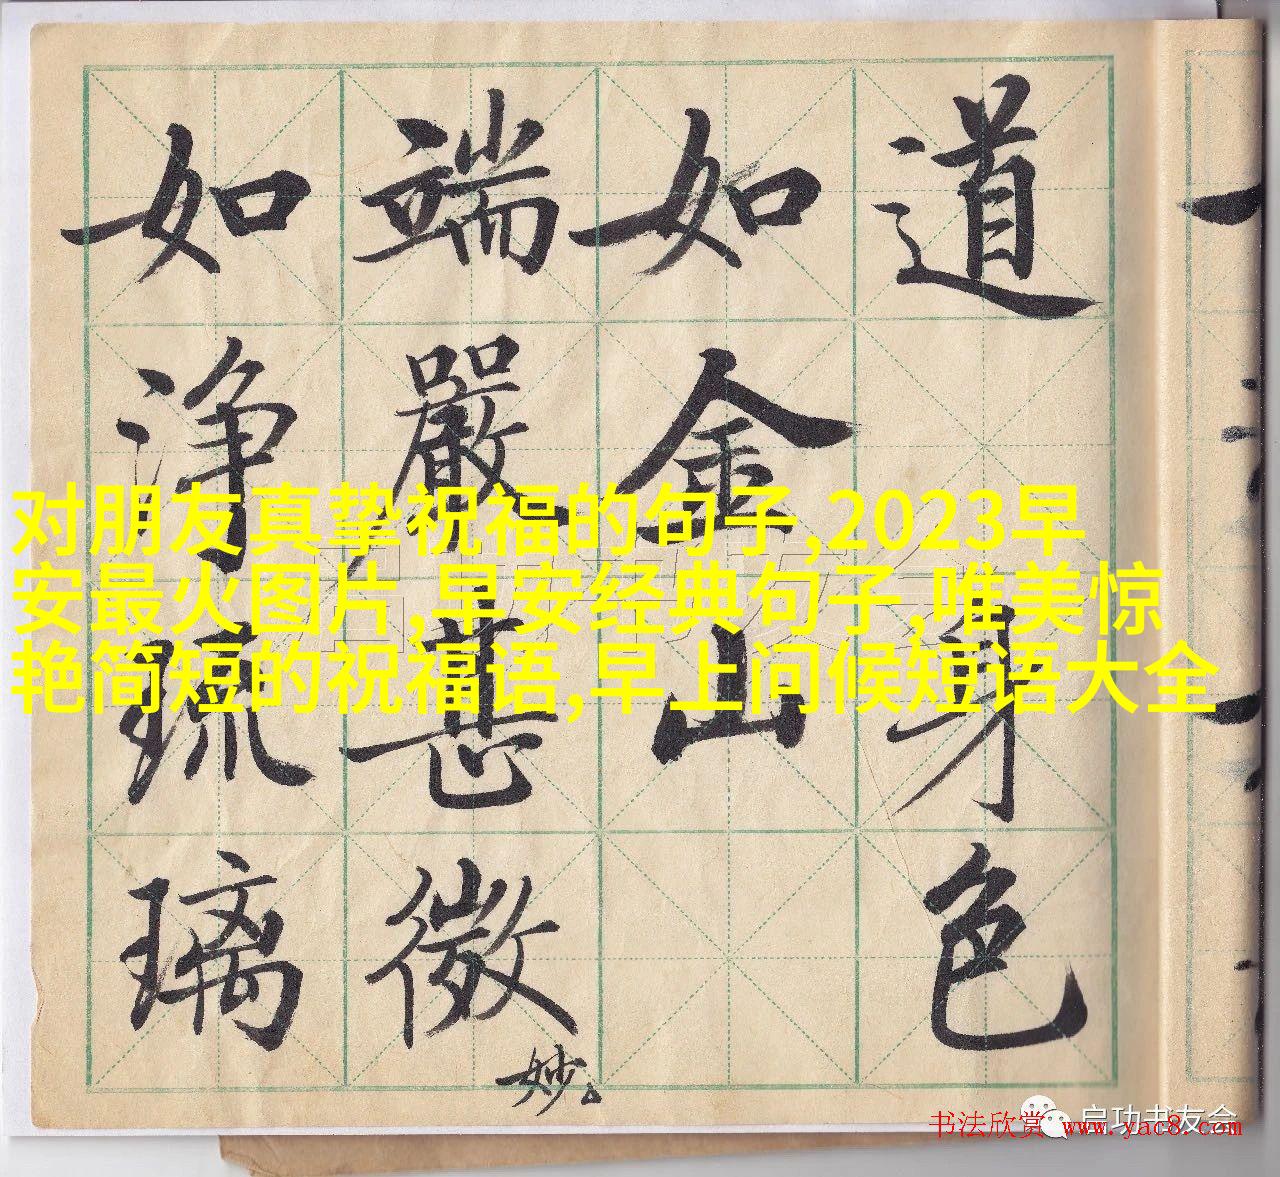 道身色
如金山
端嚴甚微妙
如淨琉璃
对朋友真挚祝福的句子,2023早
安最火图片,早安经典句子,唯美惊
艳简短的祝福语,早上问候短语大全
启功书友会
书法欣赏 www.yac8.com